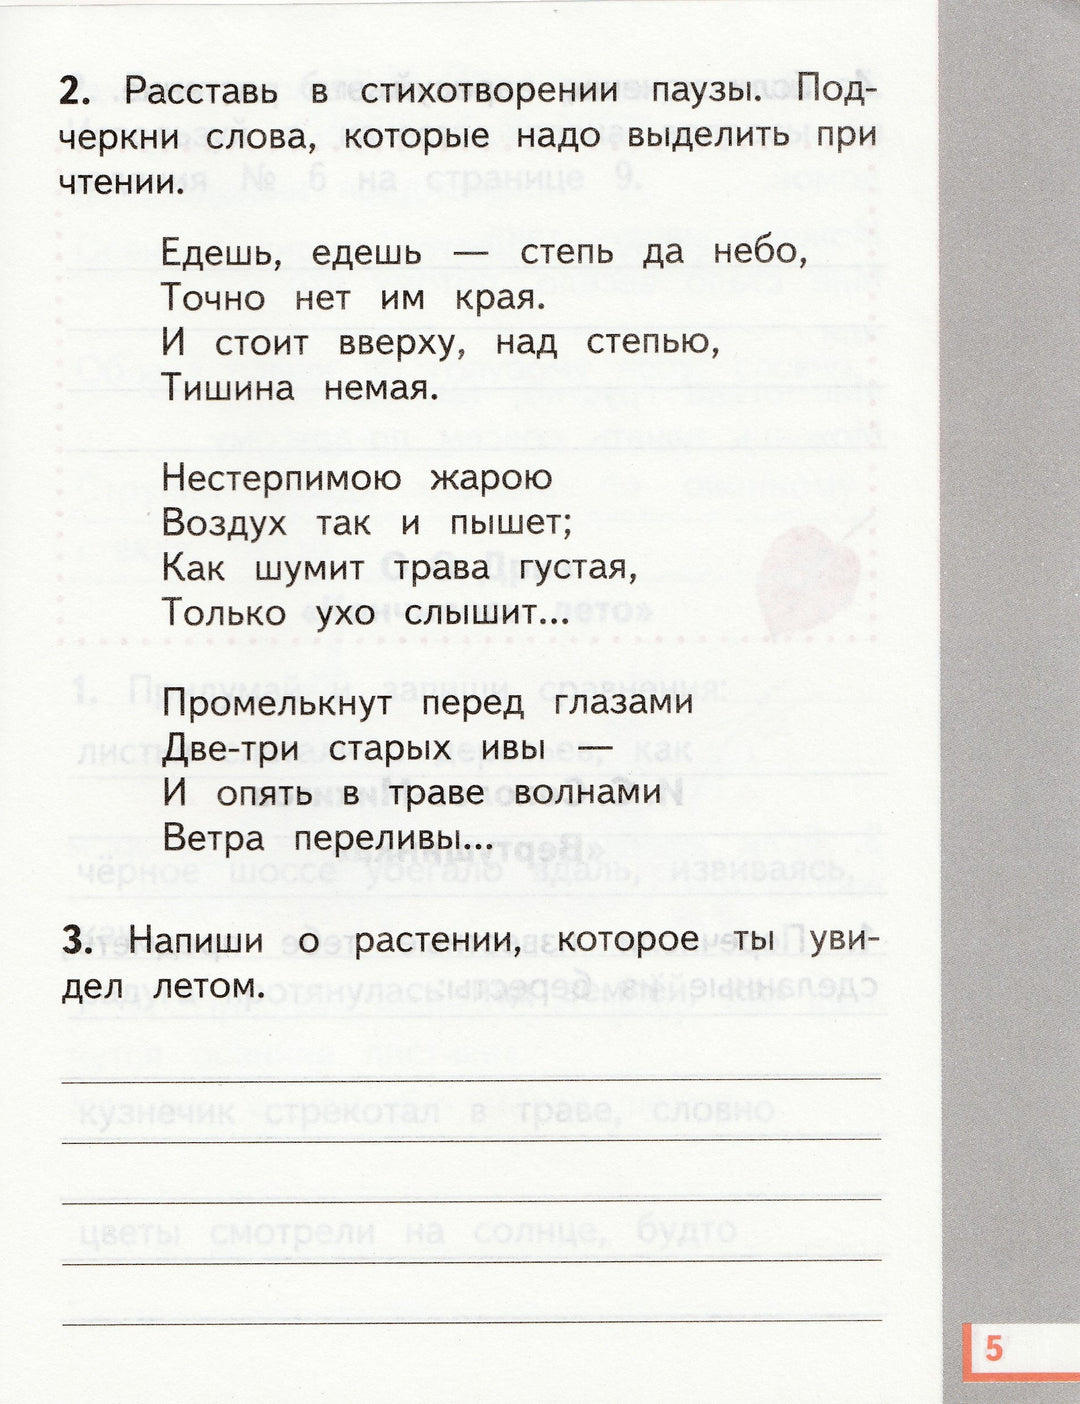 2. Расставь в стихотворении паузы. Под-
черкни слова, которые надо выделить при
чтении.
Едешь, едешь — степь да небо,
Точно нет им края.
И стоит вверху, над степью,
Тишина немая.
Нестерпимою жарою
Воздух так и пышет;
Как шумит трава густая,
Только ухо слышит...
Промелькнут перед глазами
Две-три старых ивы —
И опять в траве волнами
Ветра переливы...
3. Напиши о растении, которое ты уви-
дел летом.
5